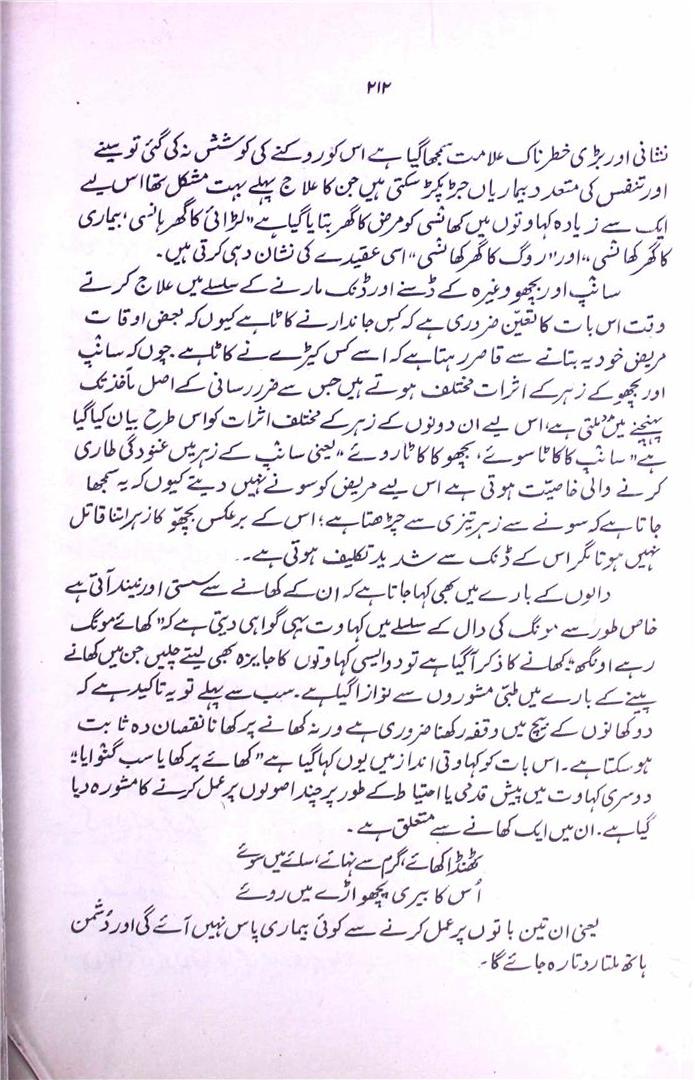 ۲۱۲
نشانی اور بڑی خطرناک علامت سمجھا گیا ہے اس کو روکنے کی کوشش نہ کی گئی تو سینے
اور تنفس کی متعدد بیماریاں جڑ پکڑ سکتی ہیں جن کا علاج پہلے بہت مشکل تھا اس لیے
ایک سے زیادہ کہاوتوں میں کھانسی کو مرض کا گھر بتایا گیا ہے "لڑائی کا گھر ہانسی، بیماری
کا گھر کھانسی"، اور "روگ کا گھر کھانسی" اسی عقیدے کی نشان دہی کرتی ہیں۔
سانپ اور بچھو وغیرہ کے ڈسنے اور ڈنک مارنے کے سلسلے میں علاج کرتے
وقت اس بات کا تعیّن ضروری ہے کہ کس جاندار نے کاٹا ہے کیوں کہ بعض اوقات
مریض خود یہ بتانے سے قاصر رہتا ہے کہ اسے کس کیڑے نے کاٹا ہے۔ چوں کہ سانپ
اور بچھو کے زہر کے اثرات مختلف ہوتے ہیں جس سے ضرر رسانی کے اصل مآخذ تک
پہنچنے میں مدد ملتی ہے، اس لیے ان دونوں کے زہر کے مختلف اثرات کو اس طرح بیان کیا گیا
ہے "سانپ کا کاٹا سوئے، بچھو کا کاٹا روئے"، یعنی سانپ کے زہر میں غنودگی طاری
کرنے والی خاصیت ہوتی ہے اس لیے مریض کو سونے نہیں دیتے کیوں کہ یہ سمجھا
جاتا ہے کہ سونے سے زہر تیزی سے چڑھتا ہے؛ اس کے برعکس بچھو کا زہر اتنا قاتل
نہیں ہوتا مگر اس کے ڈنک سے شدید تکلیف ہوتی ہے۔
دالوں کے بارے میں بھی کہا جاتا ہے کہ ان کے کھانے سے سستی اور نیند آتی ہے
خاص طور سے مونگ کی دال کے سلسلے میں کہاوت یہی گواہی دیتی ہے کہ "کھائے مونگ
رہے اونگھ"۔ کھانے کا ذکر آ گیا ہے تو دو ایسی کہاوتوں کا جایزہ بھی لیتے چلیں جن میں کھانے
پینے کے بارے میں طبّی مشوروں سے نوازا گیا ہے۔ سب سے پہلے تو یہ تاکید ہے کہ
دو کھانوں کے بیچ میں وقفہ رکھنا ضروری ہے ورنہ کھانے پر کھانا نقصان دہ ثابت
ہو سکتا ہے۔ اس بات کو کہاوتی انداز میں یوں کہا گیا ہے "کھائے پر کھایا سب گنوایا"؛
دوسری کہاوت میں پیش قدمی یا احتیاط کے طور پر چند اصولوں پر عمل کرنے کا مشورہ دیا
گیا ہے۔ ان میں ایک کھانے سے متعلق ہے۔
ٹھنڈا کھائے، گرم سے نہائے، سائے میں سوئے
اُس کا بیری پچھواڑے میں روئے
یعنی ان تین باتوں پر عمل کرنے سے کوئی بیماری پاس نہیں آئے گی اور دُشمن
ہاتھ ملتا روتا رہ جائے گا۔